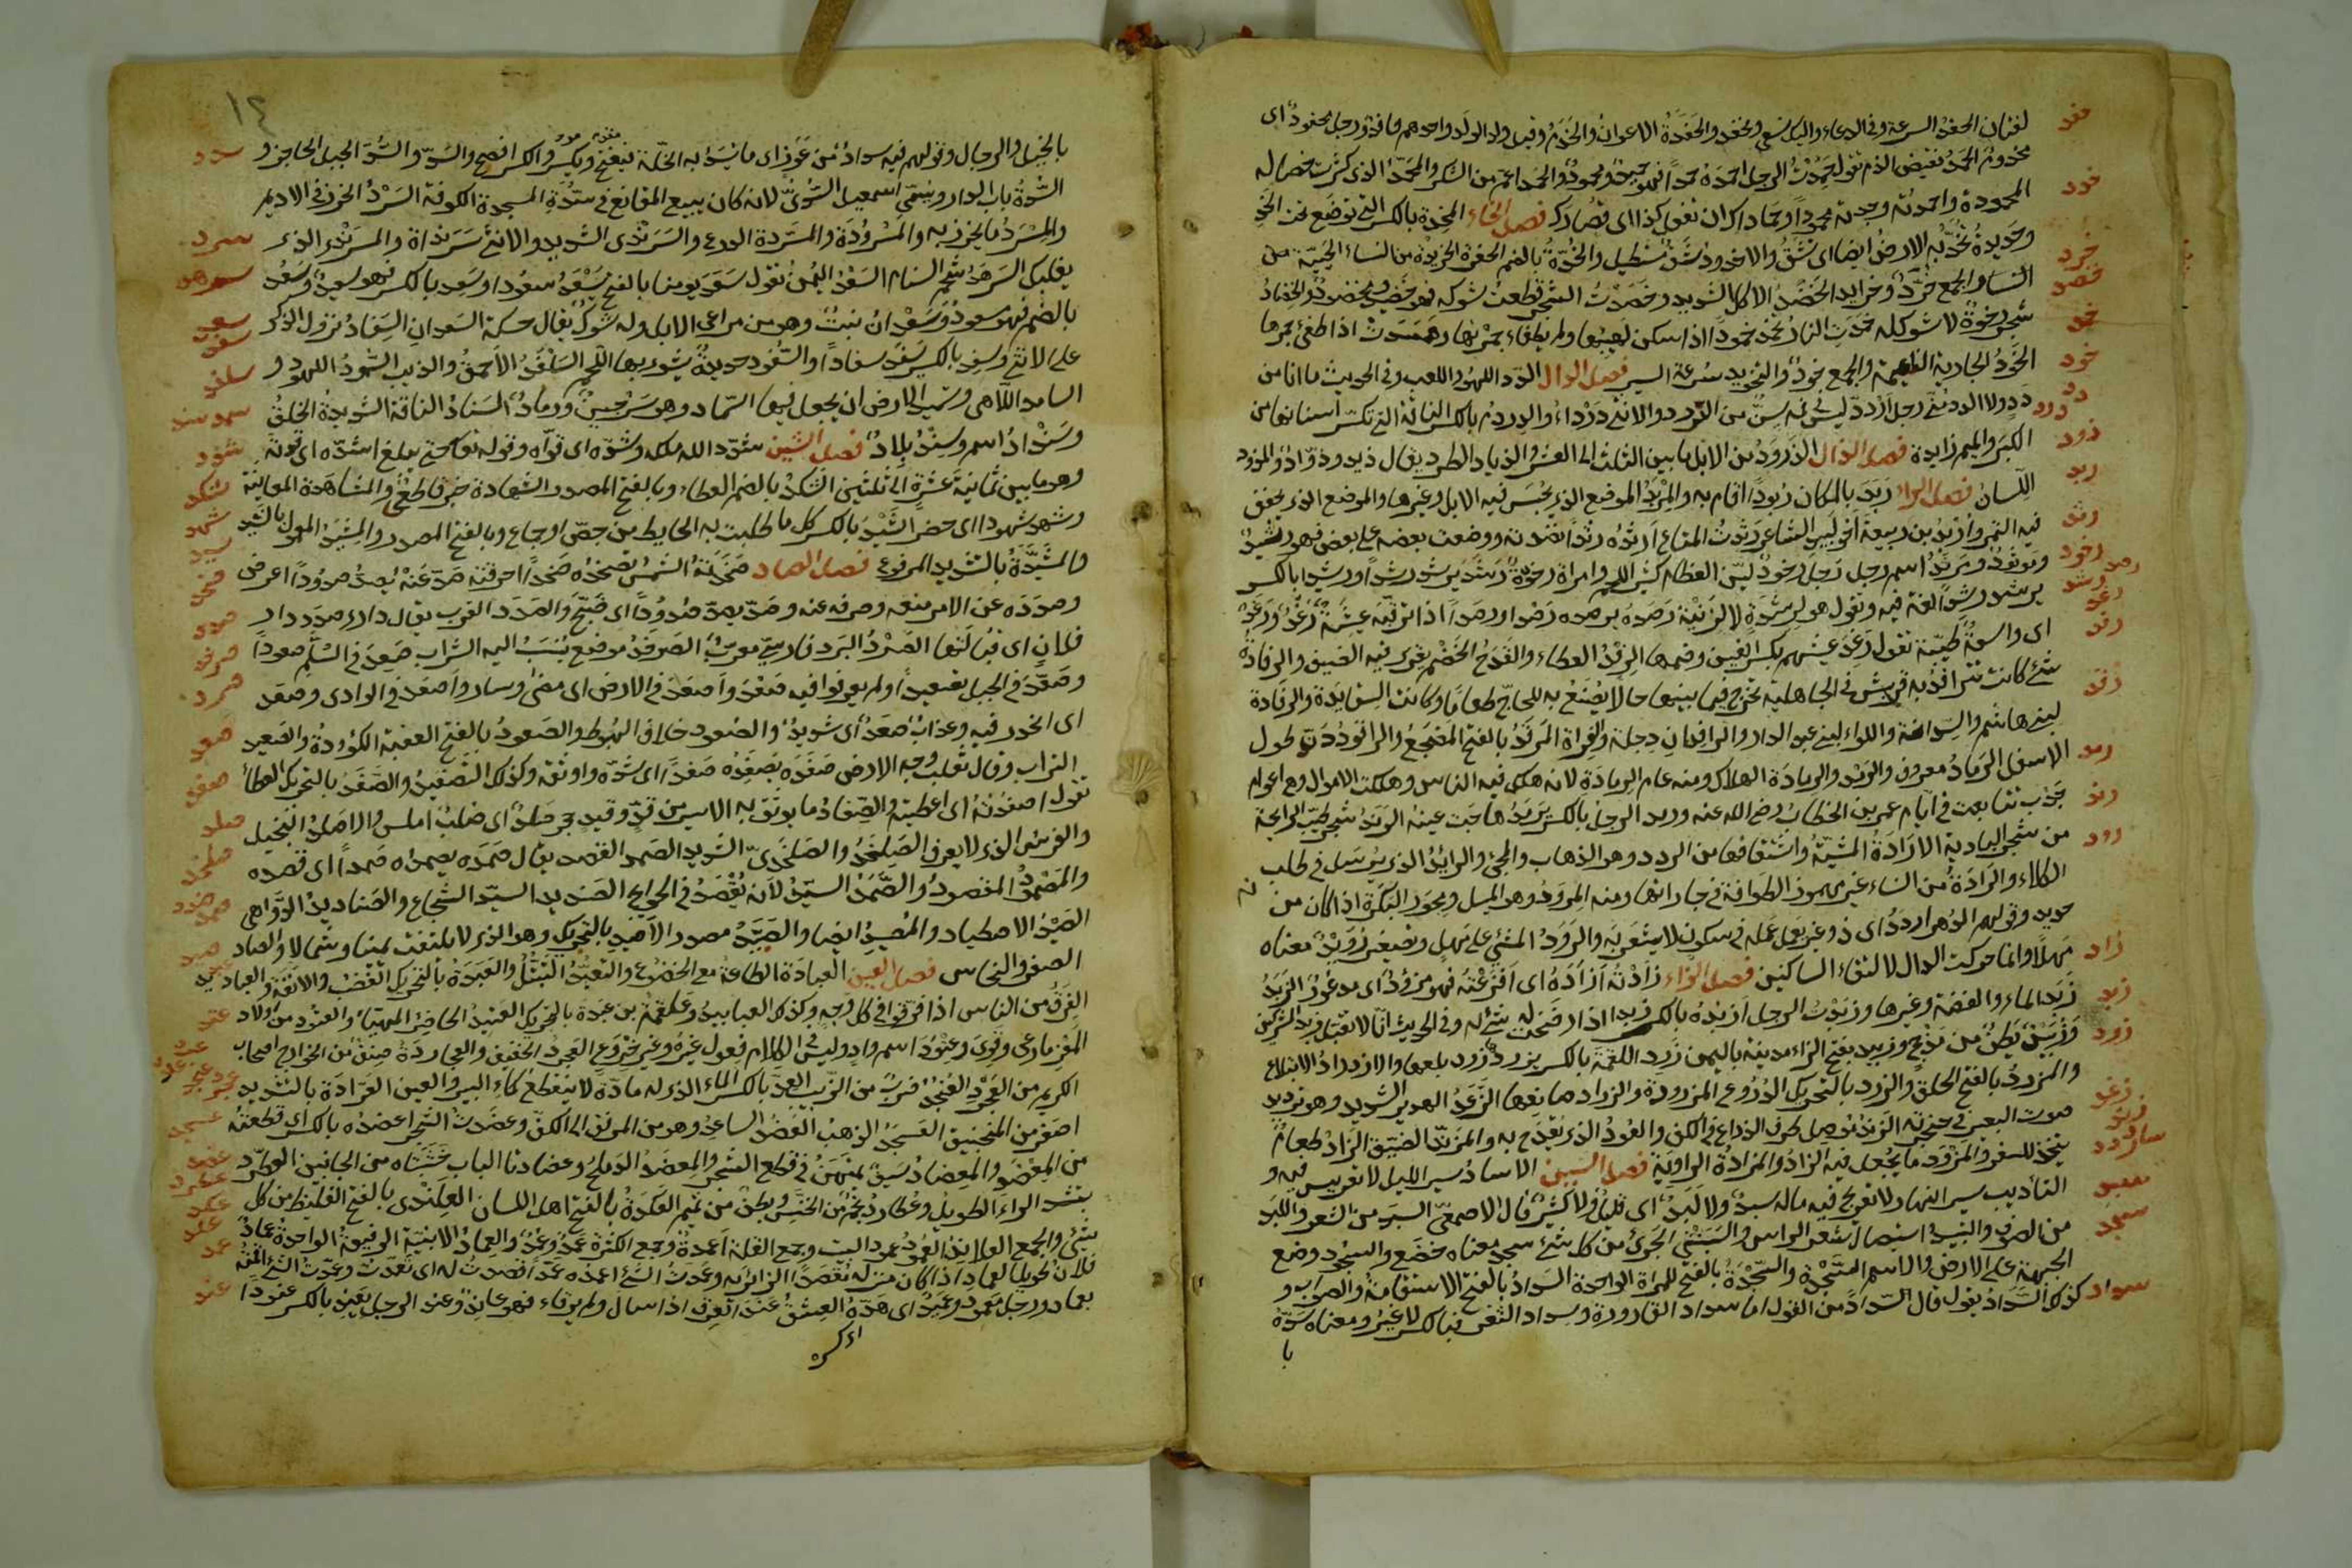 لغتان الحفد السرعة وفى الدعاء واليك نسعى ونحفد والحفدة الاعوان والخدم وقيل ولد الولد واحدهم حافد ورجل محفود اى
مخدوم الحمد نقيض الذم تقول حمدت الرجل احمده حمدا فهو حميد ومحمود والحمد اعم من الشكر والمحمد الذى كثرت خصاله
المحمودة واحمدته وجدته محمودا وحماداك ان تفعل كذا اى قصارك فصل الخاء المخدة بالكسر التى توضع تحت الخد
وحديدة تخد به الارض ايضا اى تشق والاخدود شق مستطيل والخدة بالضم الحفرة الخريدة من النساء الحيية من
النساء والجمع خرد وخرايد الخضد الاكل الشديد وخضدت الشجر قطعت شوكه فهو خضيد ومخضود والخضاد
شجر رخوة لا شوك له خمدت النار تخمد خمودا اذا سكن لهيبها ولم يطفاء جمرها وهمدت اذا طفئ جمرها
الخود الجارية الناعمة والجمع خود والتخويد سرعة السير فصل الدال الدد اللهو واللعب وفى الحديث ما انا من
دد ولا الدد منى رجل ادرد ليس فى فمه سن بين الدرد والانثى درداء والدردم بالكسر الناقة التى تكسر اسنانها من
الكبر والميم زايدة فصل الذال الذود من الابل ما بين الثلث الى العشر والذياد الطرد يقال ذيد وذواد والمذود
اللسان فصل الراء ربد بالمكان ربودا اقام به والمربد الموضع الذى يحبس فيه الابل وغيرها والموضع الذى يجفف
فيه التمر واربد بن ربيعة اخو لبيد الشاعر رثدت المتاع ارثده رثدا نضدته ووضعت بعضه على بعض فهو رثيد
ومرثود ومرثد اسم رجل رجل رخود لين العظام كثير اللحم وامراة رخودة رشد يرشد رشدا ورشدا بالكسر
يرشد رشدا لغة فيه وتقول هو لرشدة لا لزنية رصده يرصده رصدا ورصدا اذا ترقبه عيشة رغد ورغد
اى واسعة طيبة تقول رغد عيشهم بكسر الغين وضمها الرفد العطاء والقدح الضخم يقرى فيه الضيف والرفادة
شئ كانت تترافد به قريش فى الجاهلية تخرج فيما بينها مالا يصنع به للحاج طعاما وكانت السقاية والرفادة
لبنى هاشم والسدانة واللواء لبنى عبد الدار والرافدان دجلة والفراة المرقد بالفتح المضجع والراقود دن طويل
الاسفل الرماد معروف والرمد والرمادة الهلاك ومنه عام الرمادة لانه هلك فيه الناس وهلكت الاموال وهى اعوام
جدب تتابعت فى ايام عمر بن الخطاب رضى الله عنه ورمد الرجل بالكسر يرمد هاجت عينه الرند شجر طيب الرايحة
من شجر البادية الارادة المشية واشتقاقها من الرود وهو الذهاب والمجئ والرايد الذى يرسل فى طلب
الكلاء والرادة من النساء غير مهموز الطوافة فى جاراتها ومنه المرود وهو الميل ومحور البكرة اذا كان من
حديد وقولهم الدهر ارود اى ذو غير يعمل عمله فى سكون لا يشعر به والرود المشى على مهل وتصغير رويد معناه
مهلا وانما حركت الدال لالتقاء الساكنين فصل الزاء زادته ازاده اى افزعته فهو مزؤد اى مذعور الزبد
زبد الماء والفضة وغيرها وزبدت الرجل ازبده بالكسر زبدا اذا رضخت له بشئ وفى الحديث انا لا نقبل زبد المشركين
وزبيد بطن من مذحج وزبيد بفتح الزاء مدينة باليمن زرد اللقمة بالكسر يزرد زردا بلعها والازدراد الابتلاع
والمزرد بالفتح الحلق والزرد بالتحريك الدروع المزرودة والزراد صانعها الزغد الهدير الشديد وهو ترديد
صوت البعير فى حنجرته الزند موصل طرف الذراع فى الكف والعود الذى يقدح به والمزند الضيق الزاد طعام
يتخذ للسفر والمزود ما يجعل فيه الزاد والمزادة الراوية فصل السين الاساد سير الليل لا تعريس فيه و
التاديب سير النهار لا تعريج فيه ماله سبد ولا لبد اى قليل ولا كثير قال الاصمعى السبد من الشعر واللبد
من الصوف والتسبيد استيصال شعر الراس والسبنتى الجرئ من كل شئ سجد معناه خضع والسجود وضع
الجبهة على الارض والاسم السجدة والسجدة بالفتح للمراة الواحدة السداد بالفتح الاستقامة والصواب و
كذلك السداد يقول قال السداد من القول اما سداد القارورة وسداد الثغر فبالكسر لا غير ومعناه سده
با
١٤
بالخيل والرجال وقولهم فيه سداد من عوز اى ما يسد به الخلة فيفتح ويكسر والكسر افصح والسد والسد الجبل الحاجز و
السدة باب الدار وسمى اسمعيل السدى لانه كان يبيع المقانع فى سدة المسجد الكوفة السرد الخرز فى الاديم
والمسرد ما يخرز به والمسرودة والمسردة الدرع والسرندى الشديد والانثى سرنداة والمسرندى الذى
يغلبك السرهد شحم السنام السعد اليمن تقول سعد يومنا بالفتح يسعد سعودا وسعد بالكسر فهو سعيد وسعد
بالضم فهو مسعود وسعدان نبت وهو من مراعى الابل وله شوك يقال حسكة السعدان السفاد نزول الذكر
على الانثى وسفد بالكسر يسفد سفادا والسفود حديدة يشوى بها اللحم السلغد الاحمق والذيب السمود اللهو و
السامد اللاهى وتسميد الارض ان يجعل فيها السماد وهو سرجين ورماد السناد الناقة الشديدة الخلق
وسنداد اسم وسند بلاد فصل الشين شدد الله ملكه وشده اى قواه وقوله تعا حتى يبلغ اشده اى قوته
وهو ما بين ثمانية عشرة الى ثلثين الشكد بالضم العطاء وبالفتح المصدر الشهادة خبر قاطع والمشاهدة المعاينة
وشهد شهودا اى حضر الشيد بالكسر كل ما طليت به الحايط من جص او جباع وبالفتح المصدر والمشيد المعمول بالشيد
والمشيدة بالتشديد المرفوع فصل الصاد صخدته الشمس تصخده صخدا احرقته صد عنه يصد صدودا اعرض
وصدده عن الامر منعه وصرفه عنه وصد يصد صدودا اى ضج والصدد القرب يقال دارى صدد دار
فلان اى قبالتها الصرد البرد فارسى معرب الصرفند موضع ينسب اليه الشراب صعد فى السلم صعودا
وصعد فى الجبل تصعيدا ولم يعرفوا فيه صعد واصعد فى الارض اى مضى وسار واصعد فى الوادى وصعد
اى انحدر فيه وعذاب صعد اى شديد والصعود خلاف الهبوط والصعود بالفتح العقبة الكؤودة والصعيد
التراب وقال ثعلب وجه الارض صفده يصفده صفدا اى شده واوثقه وكذلك التصفيد والصفد بالتحريك العطاء
تقول اصفدته اى اعطيته والصفاد ما يوثق به الاسير من قد وقيد حجر صلد اى صلب املس والاصلد البخيل
والفرس الذى لا يعرق الصلخد والصلخدى الشديد الصمد القصد يقال صمده يصمده صمدا اى قصده
والمصمود المقصود والصمد السيد لانه يقصد فى الحوايج الصنديد السيد الشجاع والصناديد الدواهى
الصيد الاصطياد والمصيد ايضا والصيد مصدر الاصيد بالتحريك وهو الذى لا يلتفت يمينا وشمالا والصاد
الصفر والنحاس فصل العين العبادة الطاعة مع الخضوع والتعبد التنسك والعبدة بالتحريك الغضب والانفة والعباديد
الفرق من الناس اذا فرقوا فى كل وجه وكذلك العبابيد وعلقمة بن عبدة بالتحريك العتيد الحاضر المهيا والعتود من اولاد
المعز ما رعى وقوى وعتود اسم واد وليس فى الكلام فعول غيره وغير خروع العجرد الخفيف والعجاردة صنف من الخوارج اصحاب
الكريم من العجرد العنجد ضرب من الزبيب العد بالكسر الماء الذى له مادة لا ينقطع كماء البير والعين العرادة بالتشديد
اصغر من المنجنيق العسجد الذهب العضد الساعد وهو من المرفق الى الكف وعضدت الشجر اعضده بالكسر اى قطعته
من المعضد والمعضاد سيف يمتهن فى قطع الشجر والمعضد الدملج وعضادتا الباب خشبتاه من الجانبين العطرد
بتشد الراء الطويل وعطارد نجم من الخنس وبطن من تميم العكدة بالفتح اصل اللسان العلندى بالفتح الغليظ من كل
شئ والجمع العلاند العمود عمود البيت وجمع القلة اعمدة وجمع الكثرة عمد وعمد والعماد الابنية الرفيعة الواحدة عمادة
فلان طويل العماد اذا كان منزله مقصدا لزائريه وعمدت الشئ اعمده عمدا قصدت له اى تعمدت وعمدت الشئ اقمته
بعماد ورجل معمود وعميد اى هده العشق عند العرق اذا سال ولم يرقاء فهو عاند وعند الرجل يعند بالكسر عنودا